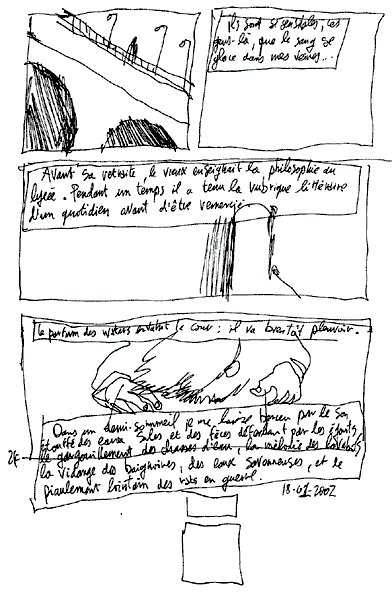 Ils sont si sensibles, ces
gens-là, que le sang se
glace dans mes veines...
Avant sa retraite, le vieux enseignait la philosophie au
lycée. Pendant un temps il a tenu la rubrique littéraire
d'un quotidien avant d'être remercié
le parfum des waters envahit la cour : il va bientôt pleuvoir.
Dans un demi-sommeil je me laisse bercer par le son
étouffé des eaux sales et des fèces déferlant par les égouts
le gargouillement des chasses d'eau, la mélodie des lavabos
la vidange des baignoires, des eaux savonneuses, et le
piaulement lointain des rats en guerre.
18-01-2002